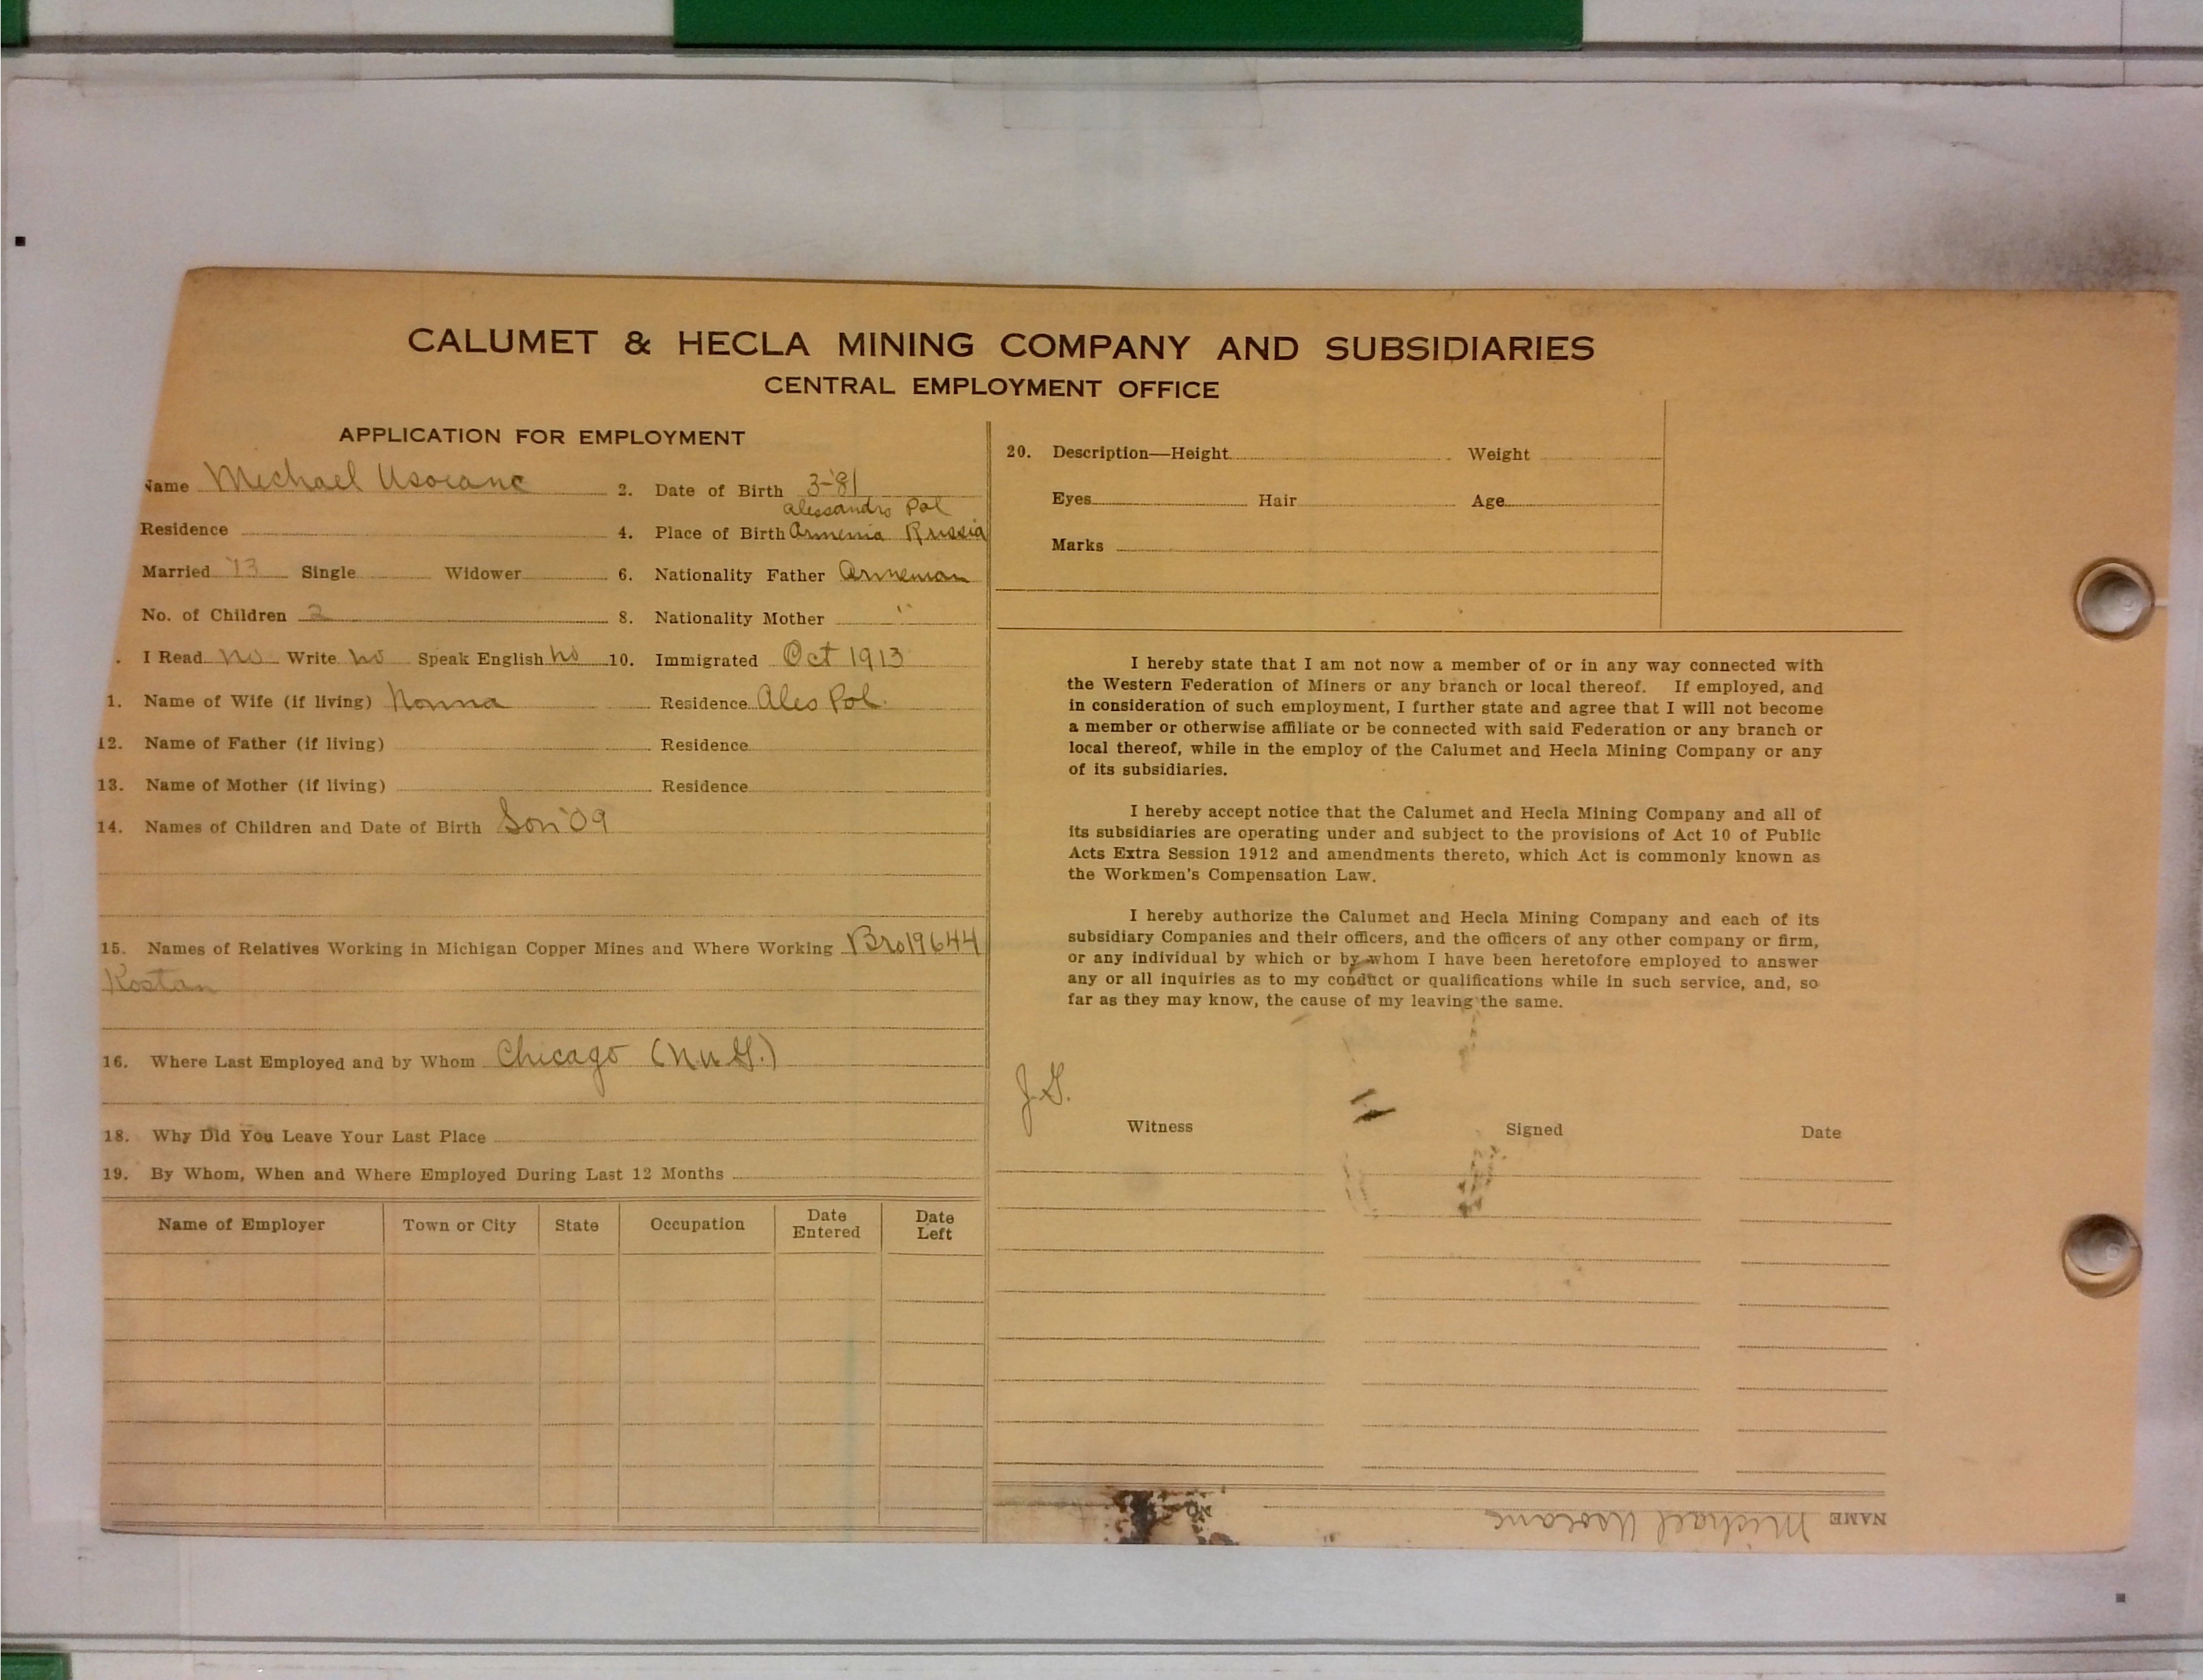 CALUMET & HECLA MINING COMPANY AND SUBSIDIARIES
CENTRAL EMPLOYMENT OFFICE
APPLICATION FOR EMPLOYMENT
Name Michael Usoianc 2. Date of Birth 3-'81
Alessandro Pol
Residence 4. Place of Birth Armenia Russia
Married '13 Single Widower 6. Nationality Father Armenian
No. of Children 2 8. Nationality Mother "
I Read no Write no Speak English no 10. Immigrated Oct 1913
1. Name of Wife (if living) Nonna Residence Ales Pol.
12. Name of Father (if living) Residence
13. Name of Mother (if living) Residence
14. Names of Children and Date of Birth Son '09
15. Names of Relatives Working in Michigan Copper Mines and Where Working Bro 19644
Kostan
16. Where Last Employed and by Whom Chicago
18. Why Did You Leave Your Last Place
19. By Whom, When and Where Employed During Last 12 Months
Name of Employer Town or City State Occupation Date Entered Date Left
20. Description—Height Weight
Eyes Hair Age
Marks
I hereby state that I am not now a member of or in any way connected with
the Western Federation of Miners or any branch or local thereof. If employed, and
in consideration of such employment, I further state and agree that I will not become
a member or otherwise affiliate or be connected with said Federation or any branch or
local thereof, while in the employ of the Calumet and Hecla Mining Company or any
of its subsidiaries.
I hereby accept notice that the Calumet and Hecla Mining Company and all of
its subsidiaries are operating under and subject to the provisions of Act 10 of Public
Acts Extra Session 1912 and amendments thereto, which Act is commonly known as
the Workmen's Compensation Law.
I hereby authorize the Calumet and Hecla Mining Company and each of its
subsidiary Companies and their officers, and the officers of any other company or firm,
or any individual by which or by whom I have been heretofore employed to answer
any or all inquiries as to my conduct or qualifications while in such service, and, so
far as they may know, the cause of my leaving the same.
J.G.
Witness Signed Date
NAME Michael Usoianc
No.